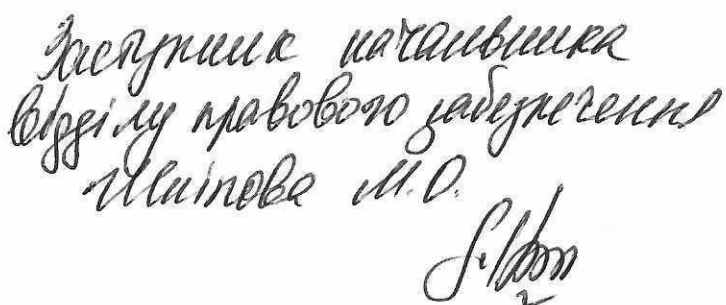 Заступник начальника
відділу правового забезпечення
М.О.